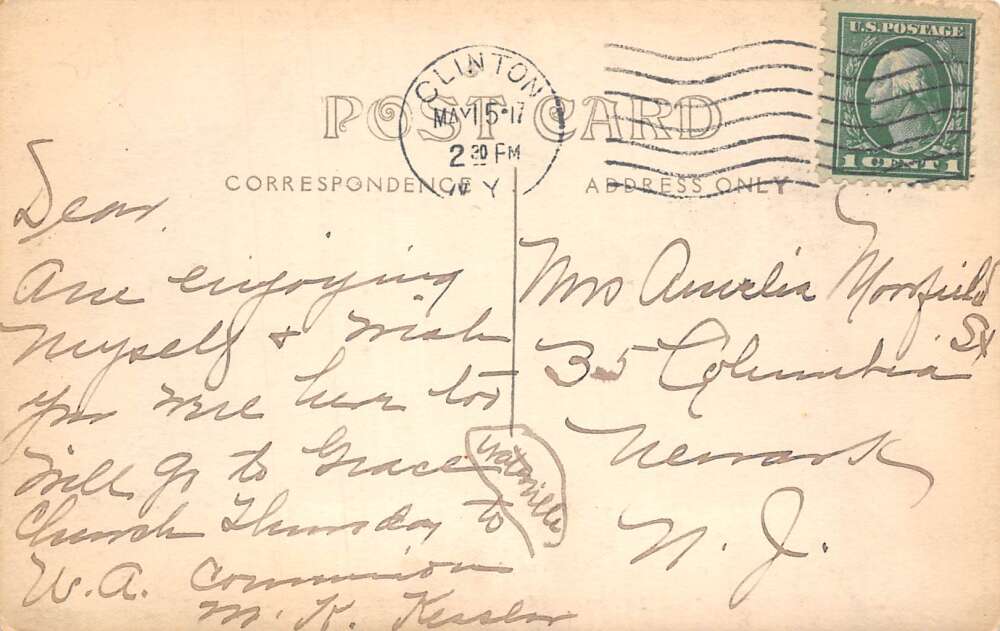 U.S. POSTAGE
1 CENT 1
CLINTON
MAY 15·17
2 30 PM
N.Y.
POST CARD
CORRESPONDENCE
ADDRESS ONLY
Dear
Am enjoying
Myself & wish
you were here too
Will go to Grace
Church Thursday to
W. A. Communion
M. K. Kessler
Waterville
Mrs Amelia Morrfield
35 Columbia St
Newark
N. J.